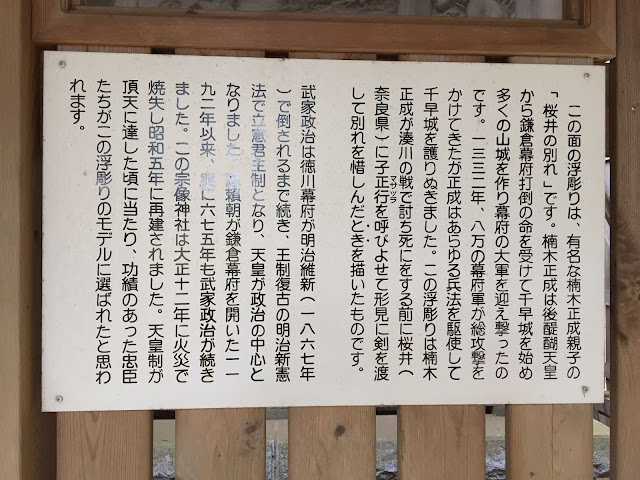 この面の浮彫りは、有名な楠木正成親子の
「桜井の別れ」です。楠木正成は後醍醐天皇
から鎌倉幕府打倒の命を受けて千早城を始め
多くの山城を作り幕府の大軍を迎え撃ったの
です。一三三二年、八万の幕府軍が総攻撃を
かけてきたが正成はあらゆる兵法を駆使して
千早城を護りぬきました。この浮彫りは楠木
正成が湊川の戦で討ち死にをする前に桜井（
奈良県）に子正行を呼びよせて形見に剣を渡
マサツラ
して別れを惜しんだときを描いたものです。
武家政治は徳川幕府が明治維新（一八六七年
）で倒されるまで続き、王制復古の明治新憲
法で立憲君主制となり、天皇が政治の中心と
なりました。源頼朝が鎌倉幕府を開いた一一
九二年以来、実に六七五年も武家政治が続き
ました。この宗像神社は大正十二年に火災で
焼失し昭和五年に再建されました。天皇制が
頂天に達した頃に当たり、功績のあった忠臣
たちがこの浮彫りのモデルに選ばれたと思わ
れます。